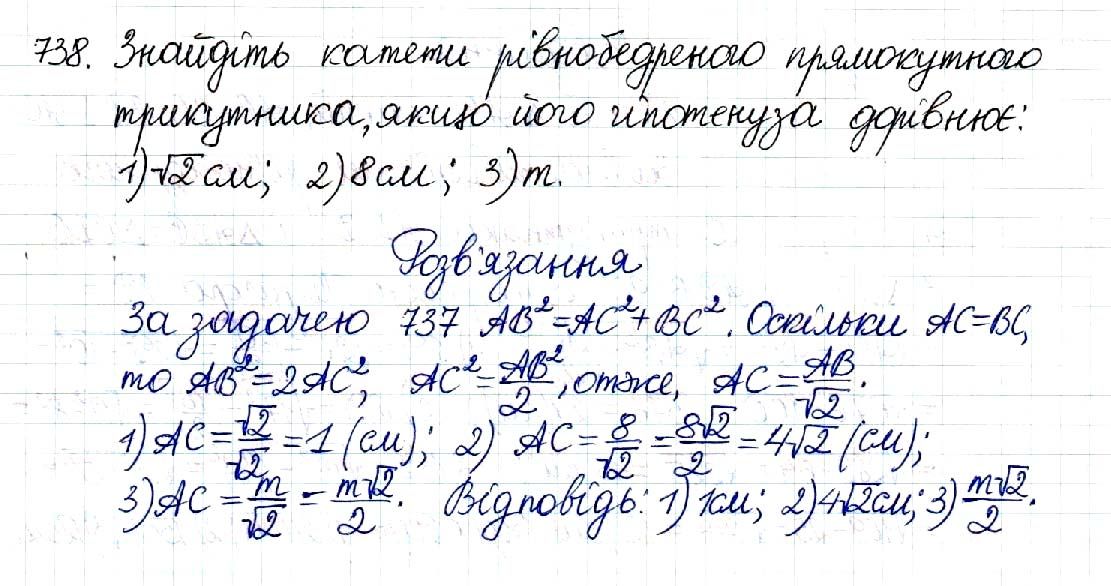 738. Знайдіть катети рівнобедреного прямокутного
трикутника, якщо його гіпотенуза дорівнює:
1) √2 см; 2) 8 см; 3) m.
Розв'язання
За задачею 737 AB² = AC² + BC². Оскільки AC = BC,
то AB² = 2AC², AC² = AB²/2, отже, AC = AB/√2.
1) AC = √2/√2 = 1 (см); 2) AC = 8/√2 = 8√2/2 = 4√2 (см);
3) AC = m/√2 = m√2/2. Відповідь: 1) 1см; 2) 4√2 см; 3) m√2/2.